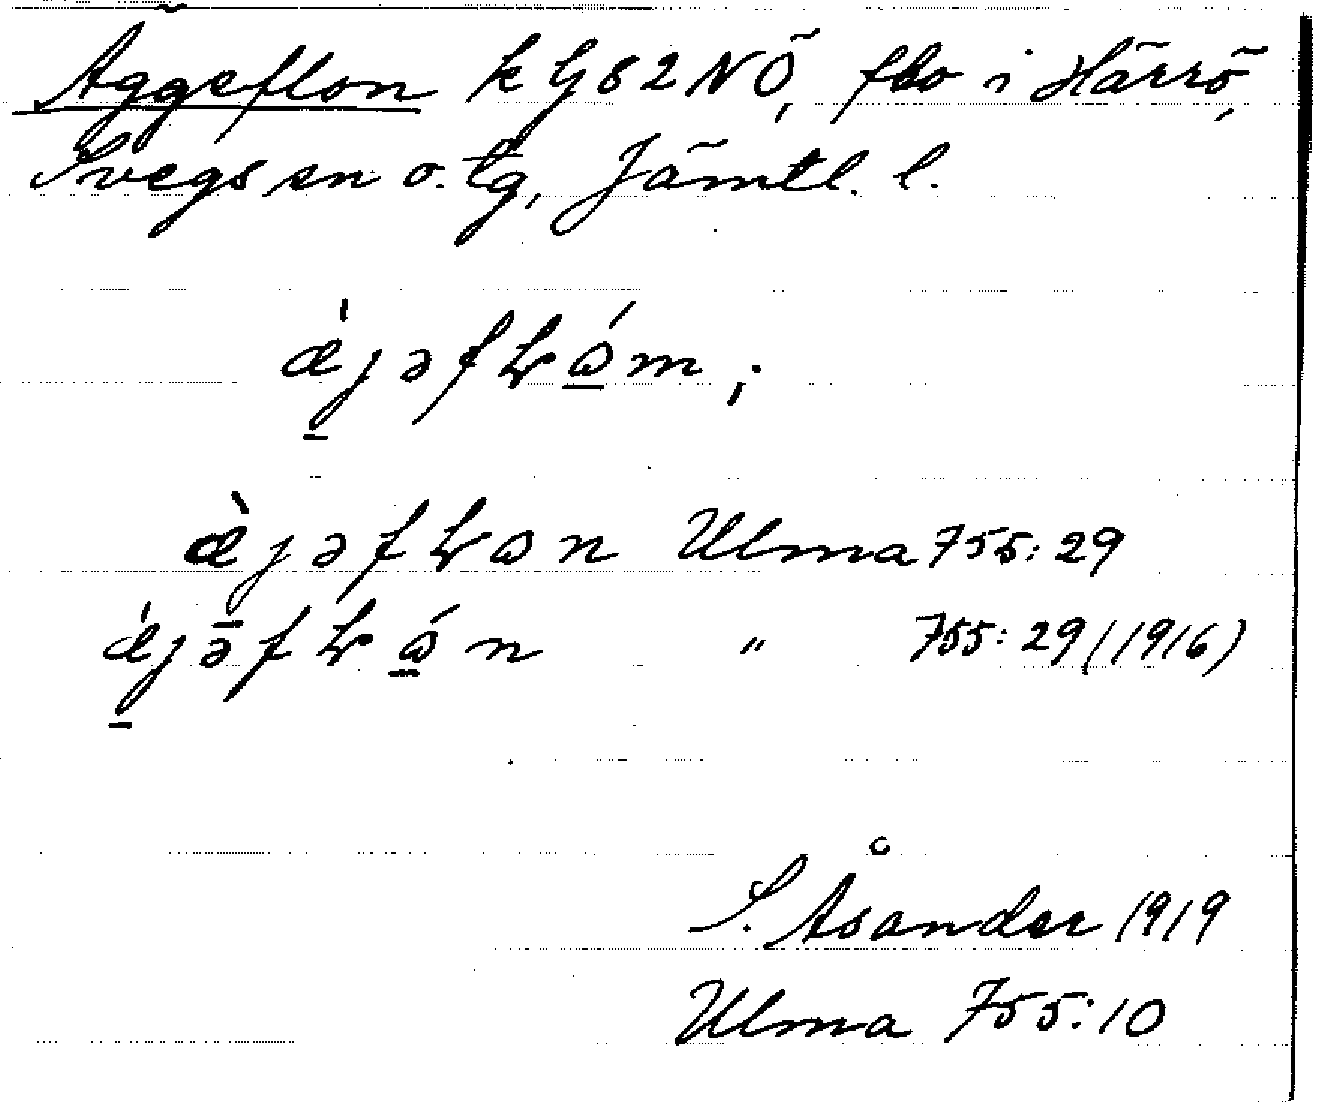 Äggeflon k G82NÖ, fbo i Härrö,
Svegs sn o. tg, Jämtl. l.
æ̀jəfɫɷ́m;
æ̀jəfɫɷn Ulma 755:29
æ̀jə̄fɫɷ́n " 755:29 (1916)
S. Åsander 1919
Ulma 755:10